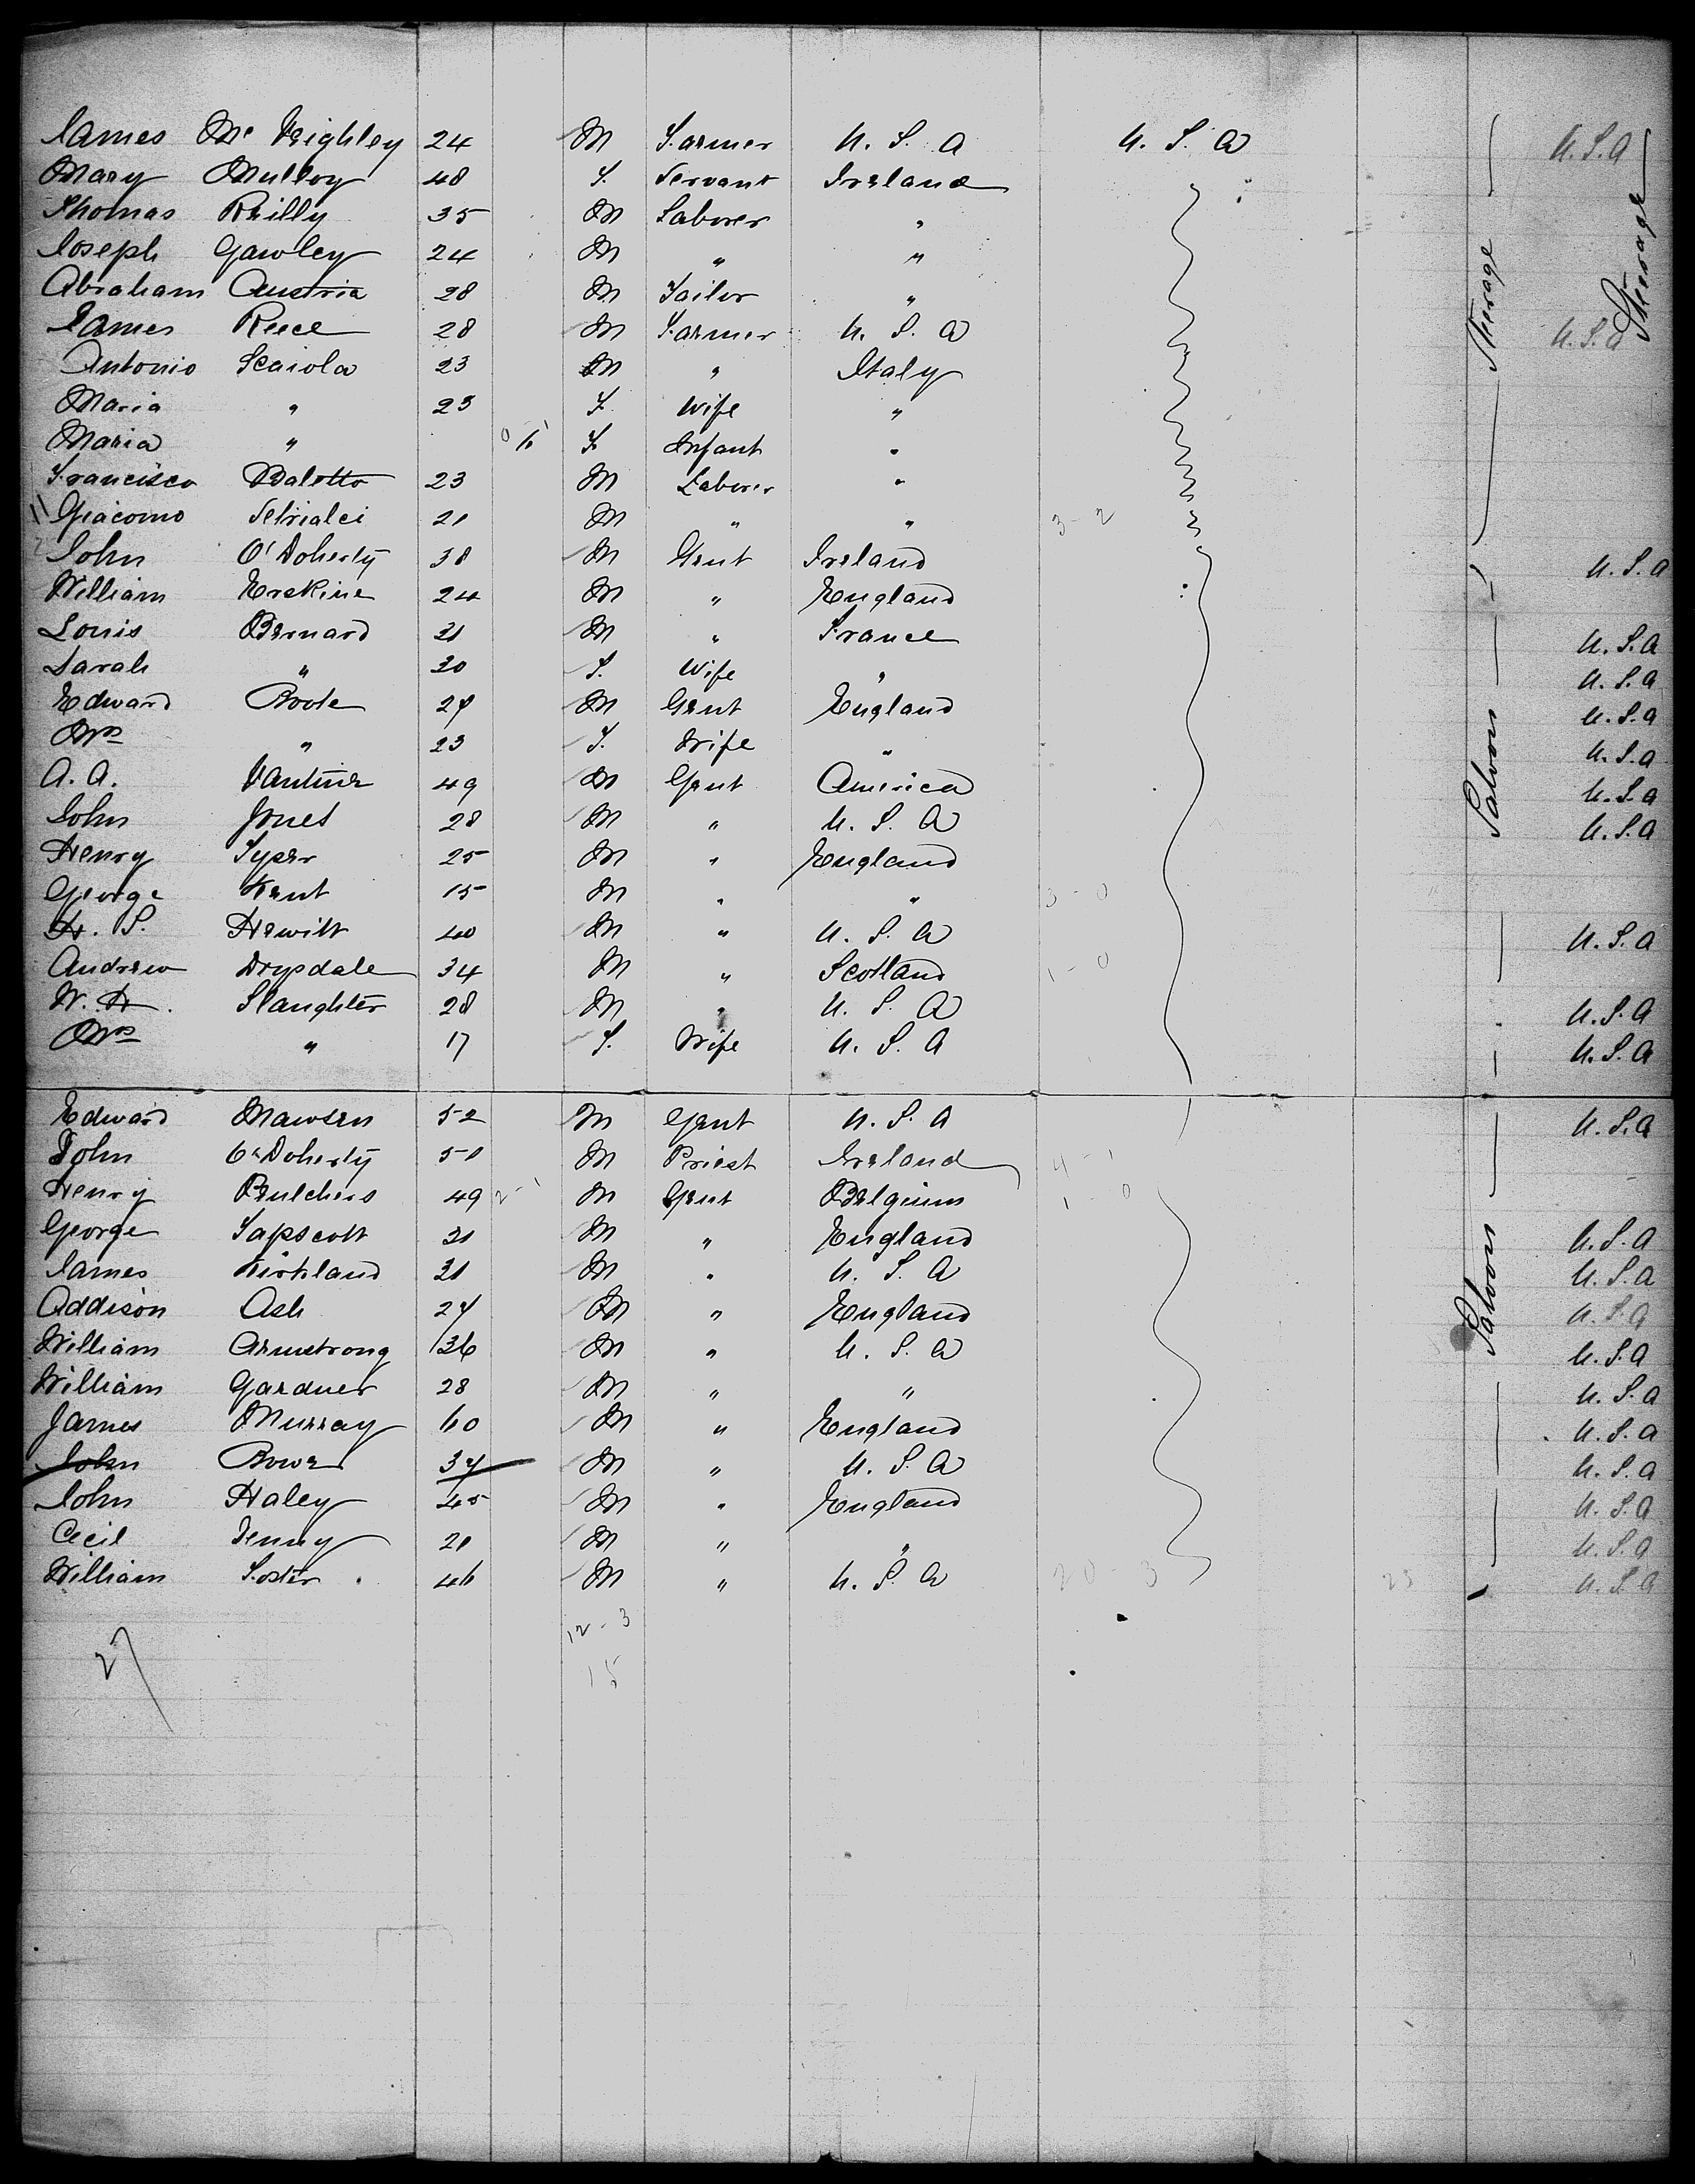 James Mc Keighley 24 M Farmer U. S. A U. S. A U.S.A
Mary Mulloy 48 F. Servant Ireland
Thomas Reilly 35 M Laborer "
Joseph Gawley 24 M " "
Abraham Austria 28 M Tailor "
James Reece 28 M Farmer U. S. A U.S.A
Antonio Scaiola 23 M " Italy
Maria " 23 F Wife "
Maria " F Infant "
Francisco Balotto 23 M Laborer "
11 Giacomo 21 M " " 3-2
Steerage
Steerage
John O'Doherty 38 M Gent Ireland U.S.A
William Erskine 24 M " England
Louis Bernard 31 M " France U.S.A
Sarah " 30 F. Wife " U.S.A
Edward Poole 24 M Gent England U.S.A
Mrs " 23 F. Wife " U.S.A
A. A. Vantine 49 M Gent America U.S.A
John Jones 28 M " U. S. A U.S.A
Henry Syer 25 M " England
George Kent 15 M " " 3-0
H. S. Hewitt 40 M " U. S. A U.S.A
Andrew Drysdale 34 M " Scotland 1-0
W. H. Slaughter 28 M " U. S. A U.S.A
Mrs " 17 F. Wife U. S. A U.S.A
Saloon
Edward Mawsen 52 M Gent U. S. A U.S.A
John O'Doherty 50 M Priest Ireland 4-1
Henry 49 2-1 M Gent Belgium 1-0
George Tapscott 31 M " England U.S.A
James Kirkland 31 M " U. S. A U.S.A
Addison Ash 24 M " England U.S.A
William Armstrong 36 M " U. S. A U.S.A
William Gardner 28 M " " U.S.A
James Murray 60 M " England U.S.A
John Bowe 34 M " U. S. A U.S.A
John Haley 45 M " England U.S.A
Cecil Jenny 21 M " " U.S.A
William Foster 46 M " U. S. A 20-3 23 U.S.A
Saloon
12-3
27
15